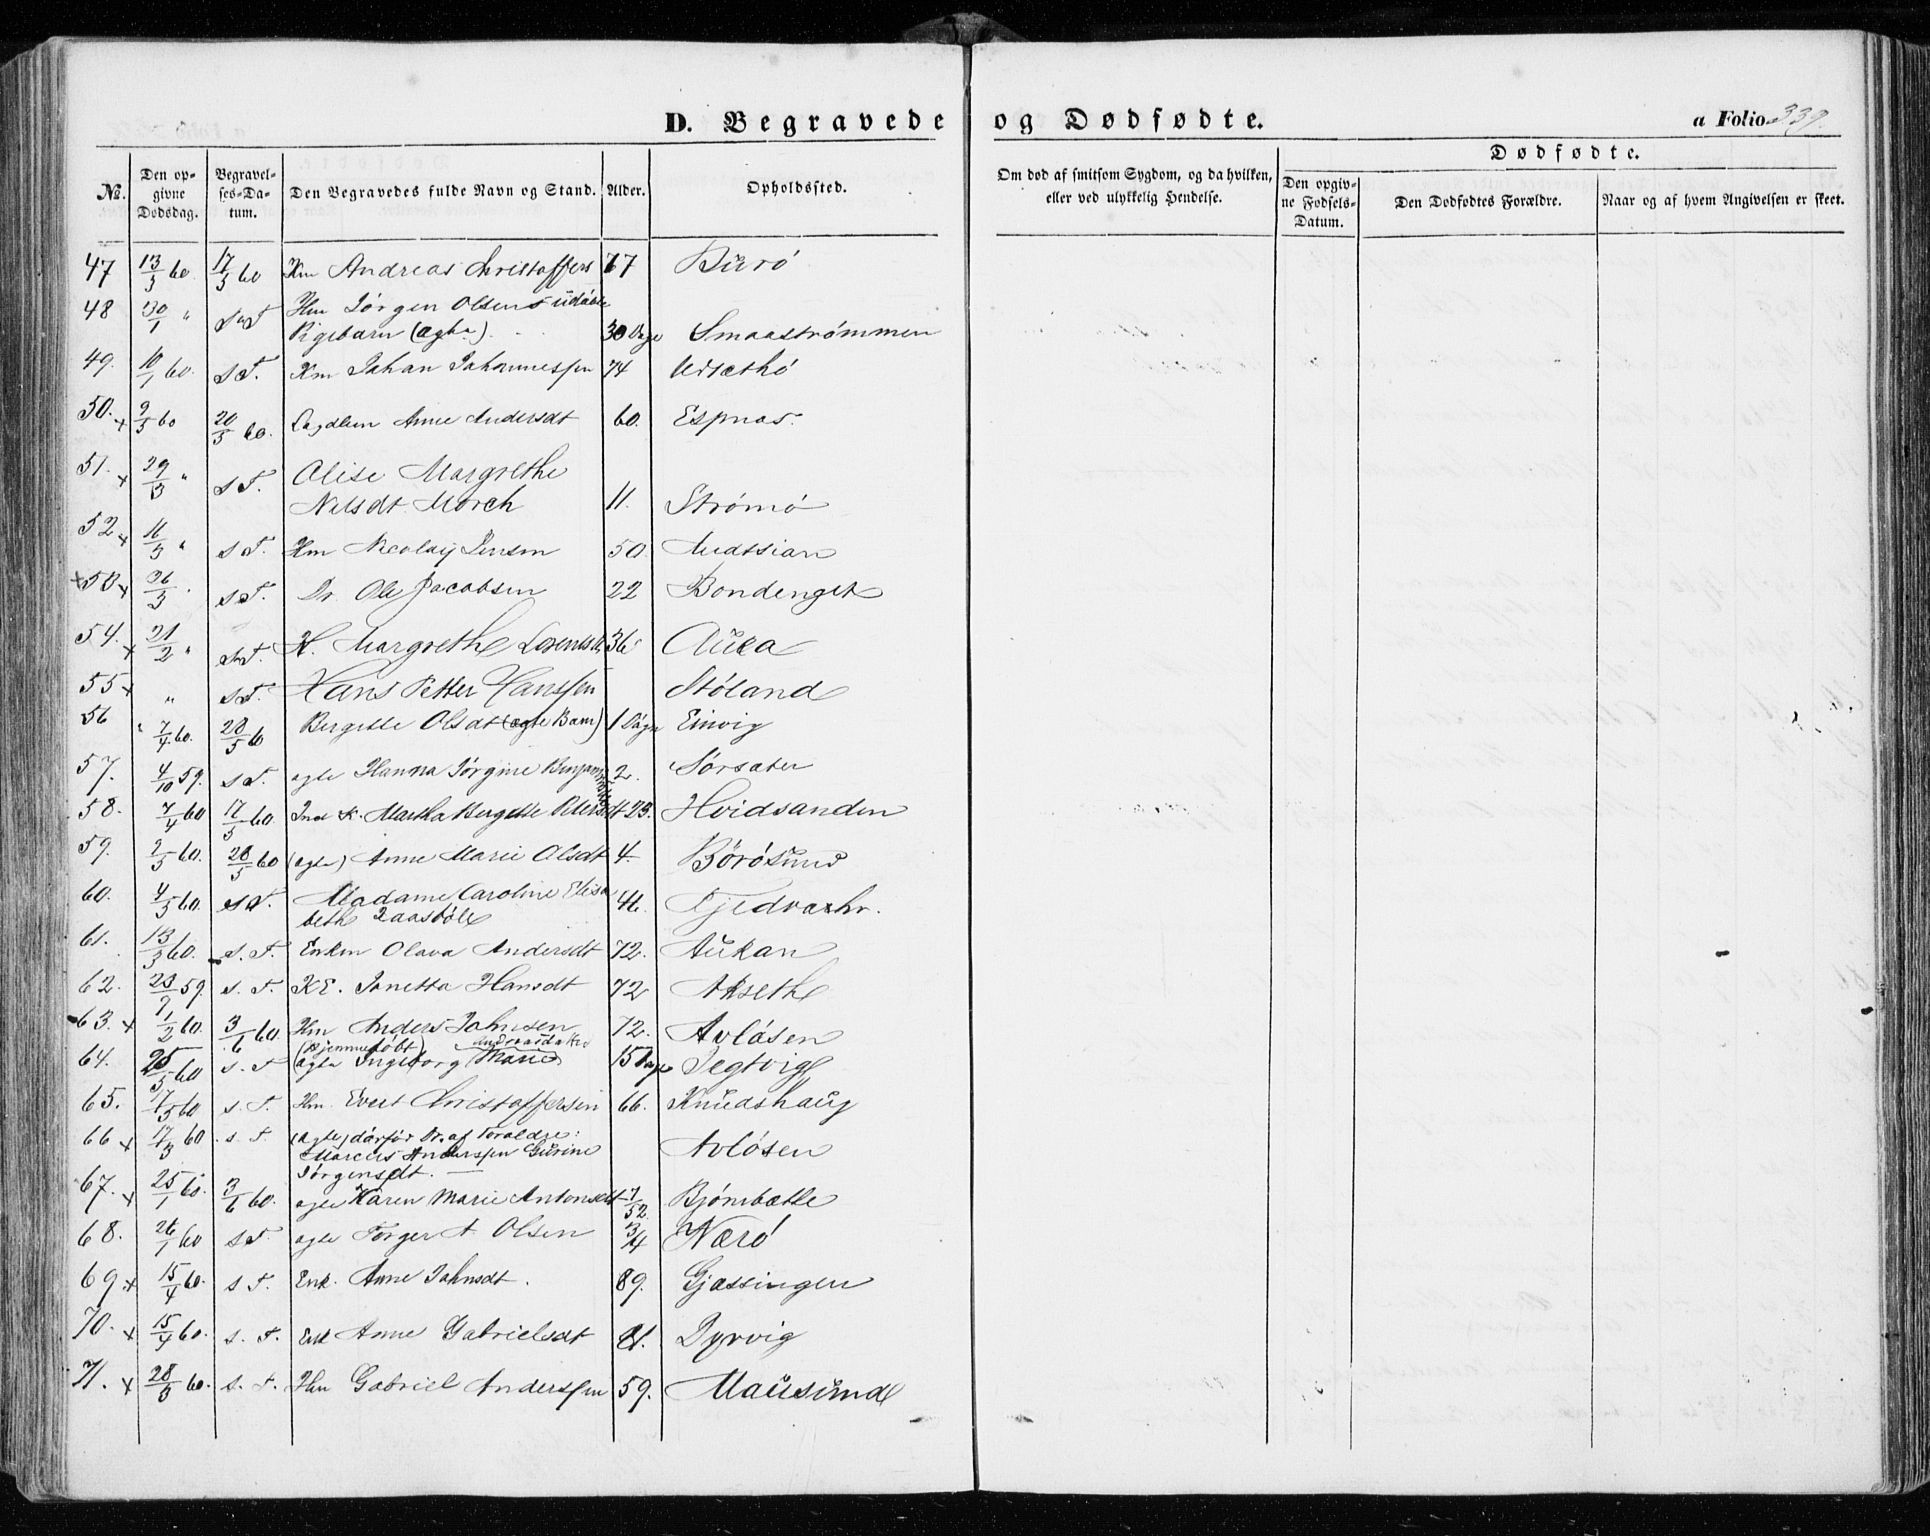 D. Begravede og Dødfødte.
a Folio 339.
No.
Den opgivne Dødsdag.
Begravelses-Datum.
Den Begravedes fulde Navn og Stand.
Alder.
Opholdssted.
Om død af smitsom Sygdom, og da hvilken, eller ved ulykkelig Hendelse.
Dødfødte.
Den opgivne Fødsels-Datum.
Den Dødfødtes Forældre.
Naar og af hvem Angivelsen er skeet.
47 13/3 60. 17/3 60 Km Andreas Christoffers 67 Burø
48 30/1 " Hm Jørgen Olsens udøbte
Pigebarn (ægte) 30 Dage Smaastrømmen
49. 10/1 60. s T. Km Johan Johannessen 74
50. x 9/3 60 20/3 60. Anne Andersdt 60. Espnæs.
51. x 29/3 " s T. Olise Margrethe
Nilsdt Morch 11. Strømø
52 x 11/3 " s T. Hm Nicolay Jensen 50
x 53 x 26/3 s T. Dr. Ole Jacobsen 22 Bondenget
54. x 21/2 " s T. H. Margrethe Lorentsdt 36
55 x " s T. Hans Petter Hanssen Støland
56 7/4 60. 28/5 60 Bergitte Olsdt (ægte Barn) 1 Døgn Einvig
57. 4/10 59. s T. ægte Hanna Jørgine 2. Sørsæter
58. 7/4 60 17/5 60. Ind. K. Martha Bergitte Petersdt 23. Hvidsanden
59. 2/5 60. 28/5 60 (ægte) Anne Marie Olsdt 4. Börösund
60. 4/5 60. s T. Madame Caroline Elisa
beth
61. 13/3 60. s. T. Enken Olava Andersdt 72. Aukan
62. 23/9 59. s. T. KE. Jonetta Hansdt 72 Akseth
63. x 1/2 60. 3/6 60. Hm Anders Johnsen 72. Avløsen
64. 25/5 60 s. T (hjemmedøbt)
ægte Ingeborg Marie 15 Dage Segtvig
65. 17/5 60 s. T. Hm. Evert Christoffersen 66. Knudshaug
66 x 17/3 60 s. T. (ægte) dødfør Dr. af Foraldre:
Marcus Anderssen Gurine
Jørgensdt. Avløsen
67. x 25/1 60. 3/6 60. ægte Karen Marie Antonsdt 7/52 Bjørnbætte
68. 26/1 60 s T. ægte Torger A Olsen 3/4 Nærø
69 x 15/4 60. s T. Enk. Anne Johnsdt. 89. Gjæssingen
70. x 15/4 60. s. T. Enk Anne Gabrielsdt Dyrvig
71. x 28/3 60. s. T. Hm Gabriel Anderssen 59. Mausund